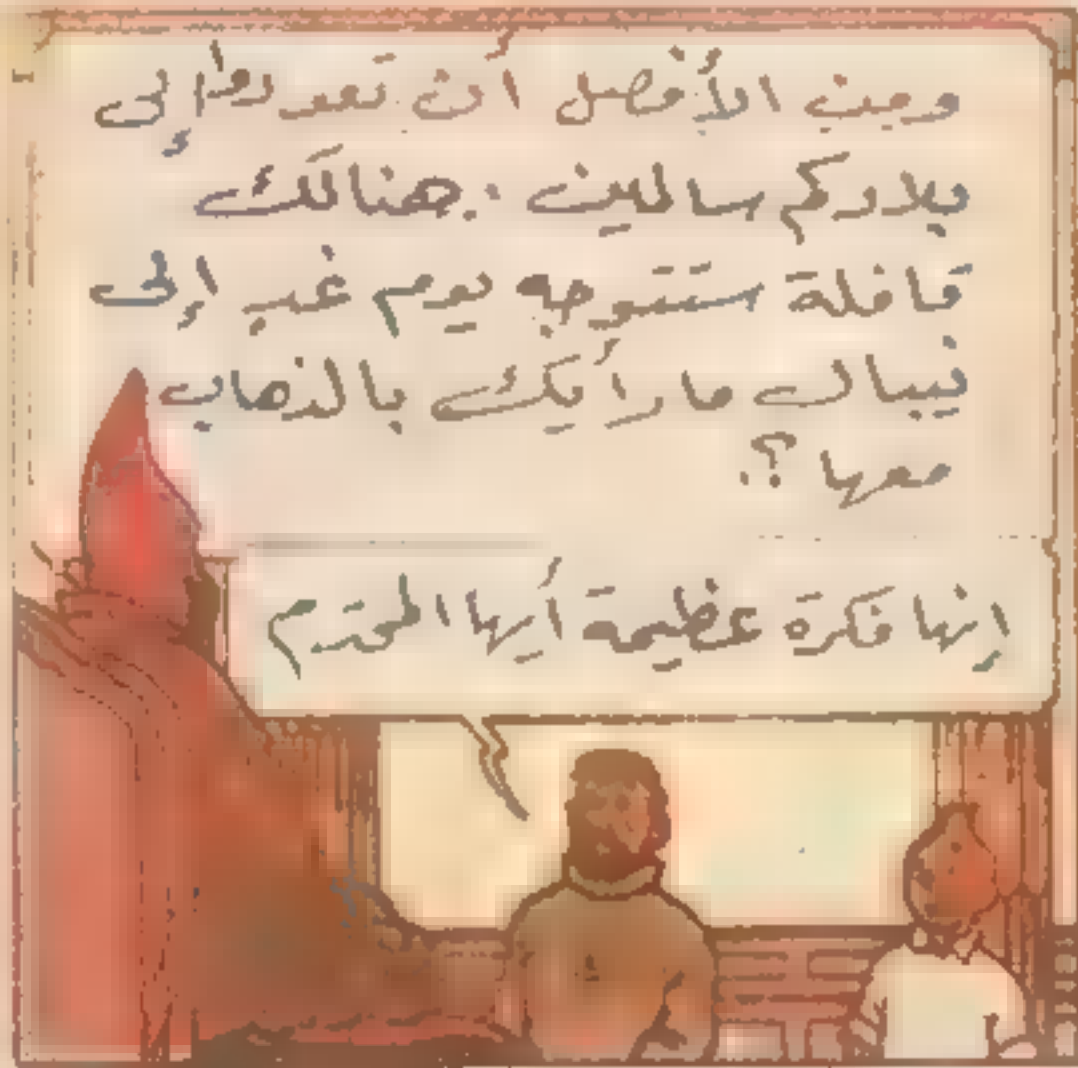 ومن الأفضل أن تعودوا إلى
بلادكم سالمين . هنالك
قافلة ستتوجه يوم غد إلى
نيبال ما رأيك بالذهاب
معها ؟.
إنها فكرة عظيمة أيها المحترم